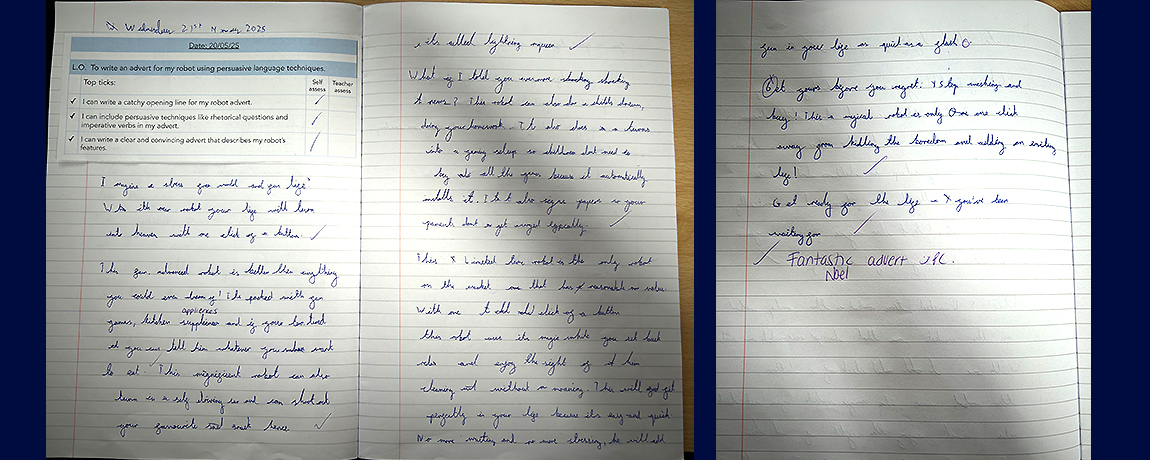 Wednesday 21st May 2025
Date: 20/05/25
L.O. To write an advert for my robot using persuasive language techniques.
Top ticks:
Self assess
Teacher assess
✓ I can write a catchy opening line for my robot advert.
✓ I can include persuasive techniques like rhetorical questions and imperative verbs in my advert.
✓ I can write a clear and convincing advert that describes my robot's features.
Imagine a stress free world and fun life?
With new robot your life will turn
into heaven with one click of a button.
This fun, advanced robot is better then anything
you could even dream of! Its packed with fun
appliences
games, kitchen and if your too tired
you can tell him whatever you want
to eat. This magnificent robot can also
turn in a self driving car and can
your favourite
its called lightning
What if I told you even more shocking
news? This robot can also do
doing your homework. It also does turns
into a gaming setup so children dont need to
buy all the games because it automatically
installs it. It also papers so your
parents dont get
This limited time robot is the only robot
on the market that has reasonable value.
With one click of a button
this robot uses its magic while you sit back
relax and enjoy the sight of him
cleaning without a moaning. This will fit
perfectly in your life because its easy and quick.
No more waiting and no more stressing, he will add
fun in your life as quick as a flash
Get yours before you regret. Stop waiting and
buy! This magical robot is only one click
away from killing the boredom and adding an exciting
life!
Get ready for the life you've been
waiting for
Fantastic advert